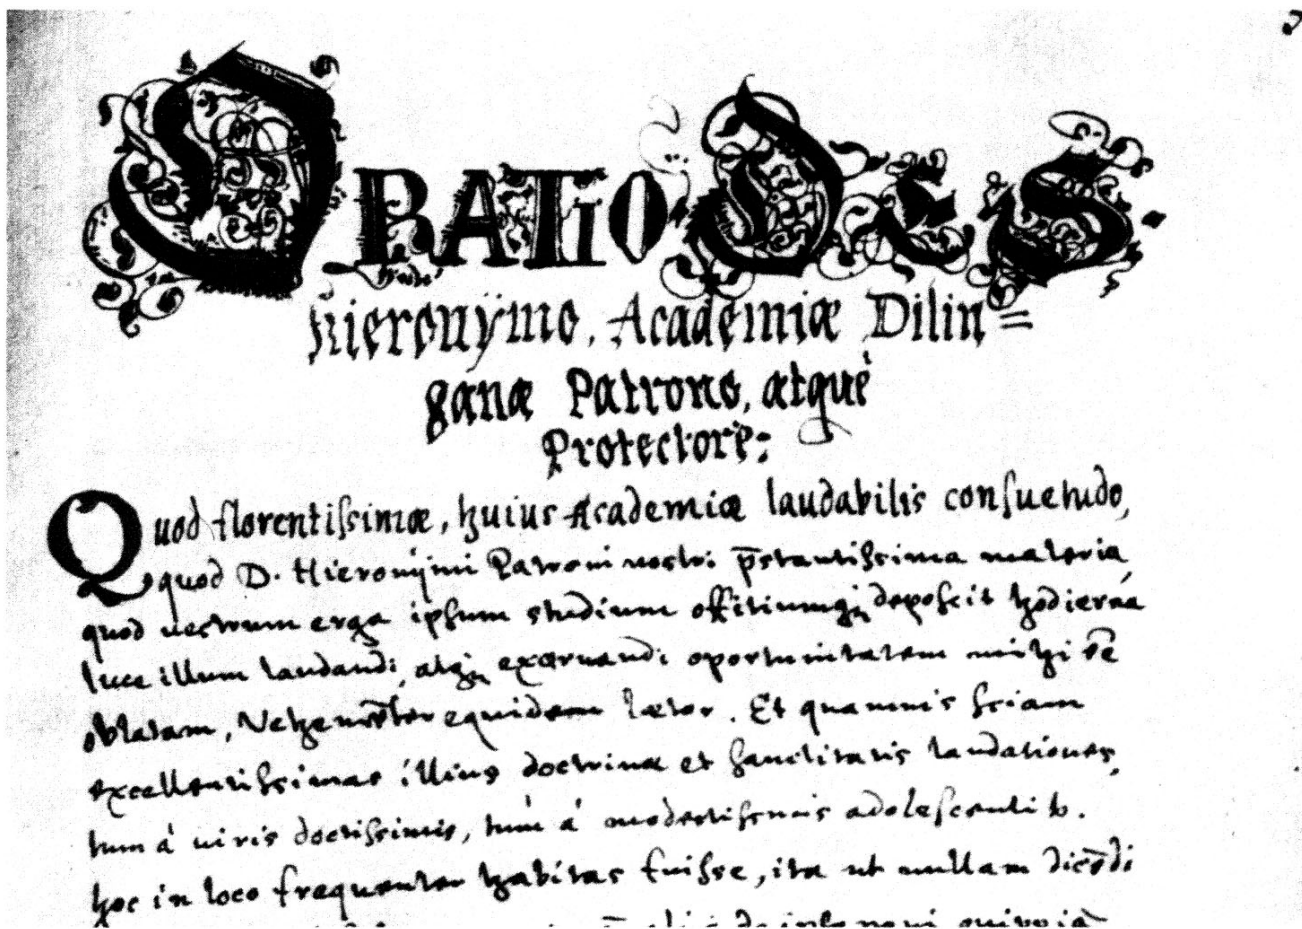 ORATIO DE S
Hieronÿmo, Academiæ Dilin=
ganæ Patrono, atquè
Protectore:
Quod florentissimæ, huius Academiæ laudabilis consuetudo,
quod D. Hieronÿmi Patroni nostri p̄stantissima materia
quod vestrum erga ipsum studium offitiumq; deposcit hodierna
luce illum laudandi, atq; exornandi oportunitatem mihi
oblatam, Vehemēter equidem lætor. Et quamuis sciam
excellentissimas illius doctrinæ et sanctitatis laudationes,
tum á uiris doctissimis, tum á modestissimis adolescentib.
hoc in loco frequenter habitas fuisse, ita ut nullam dicēdi
de ipso noui